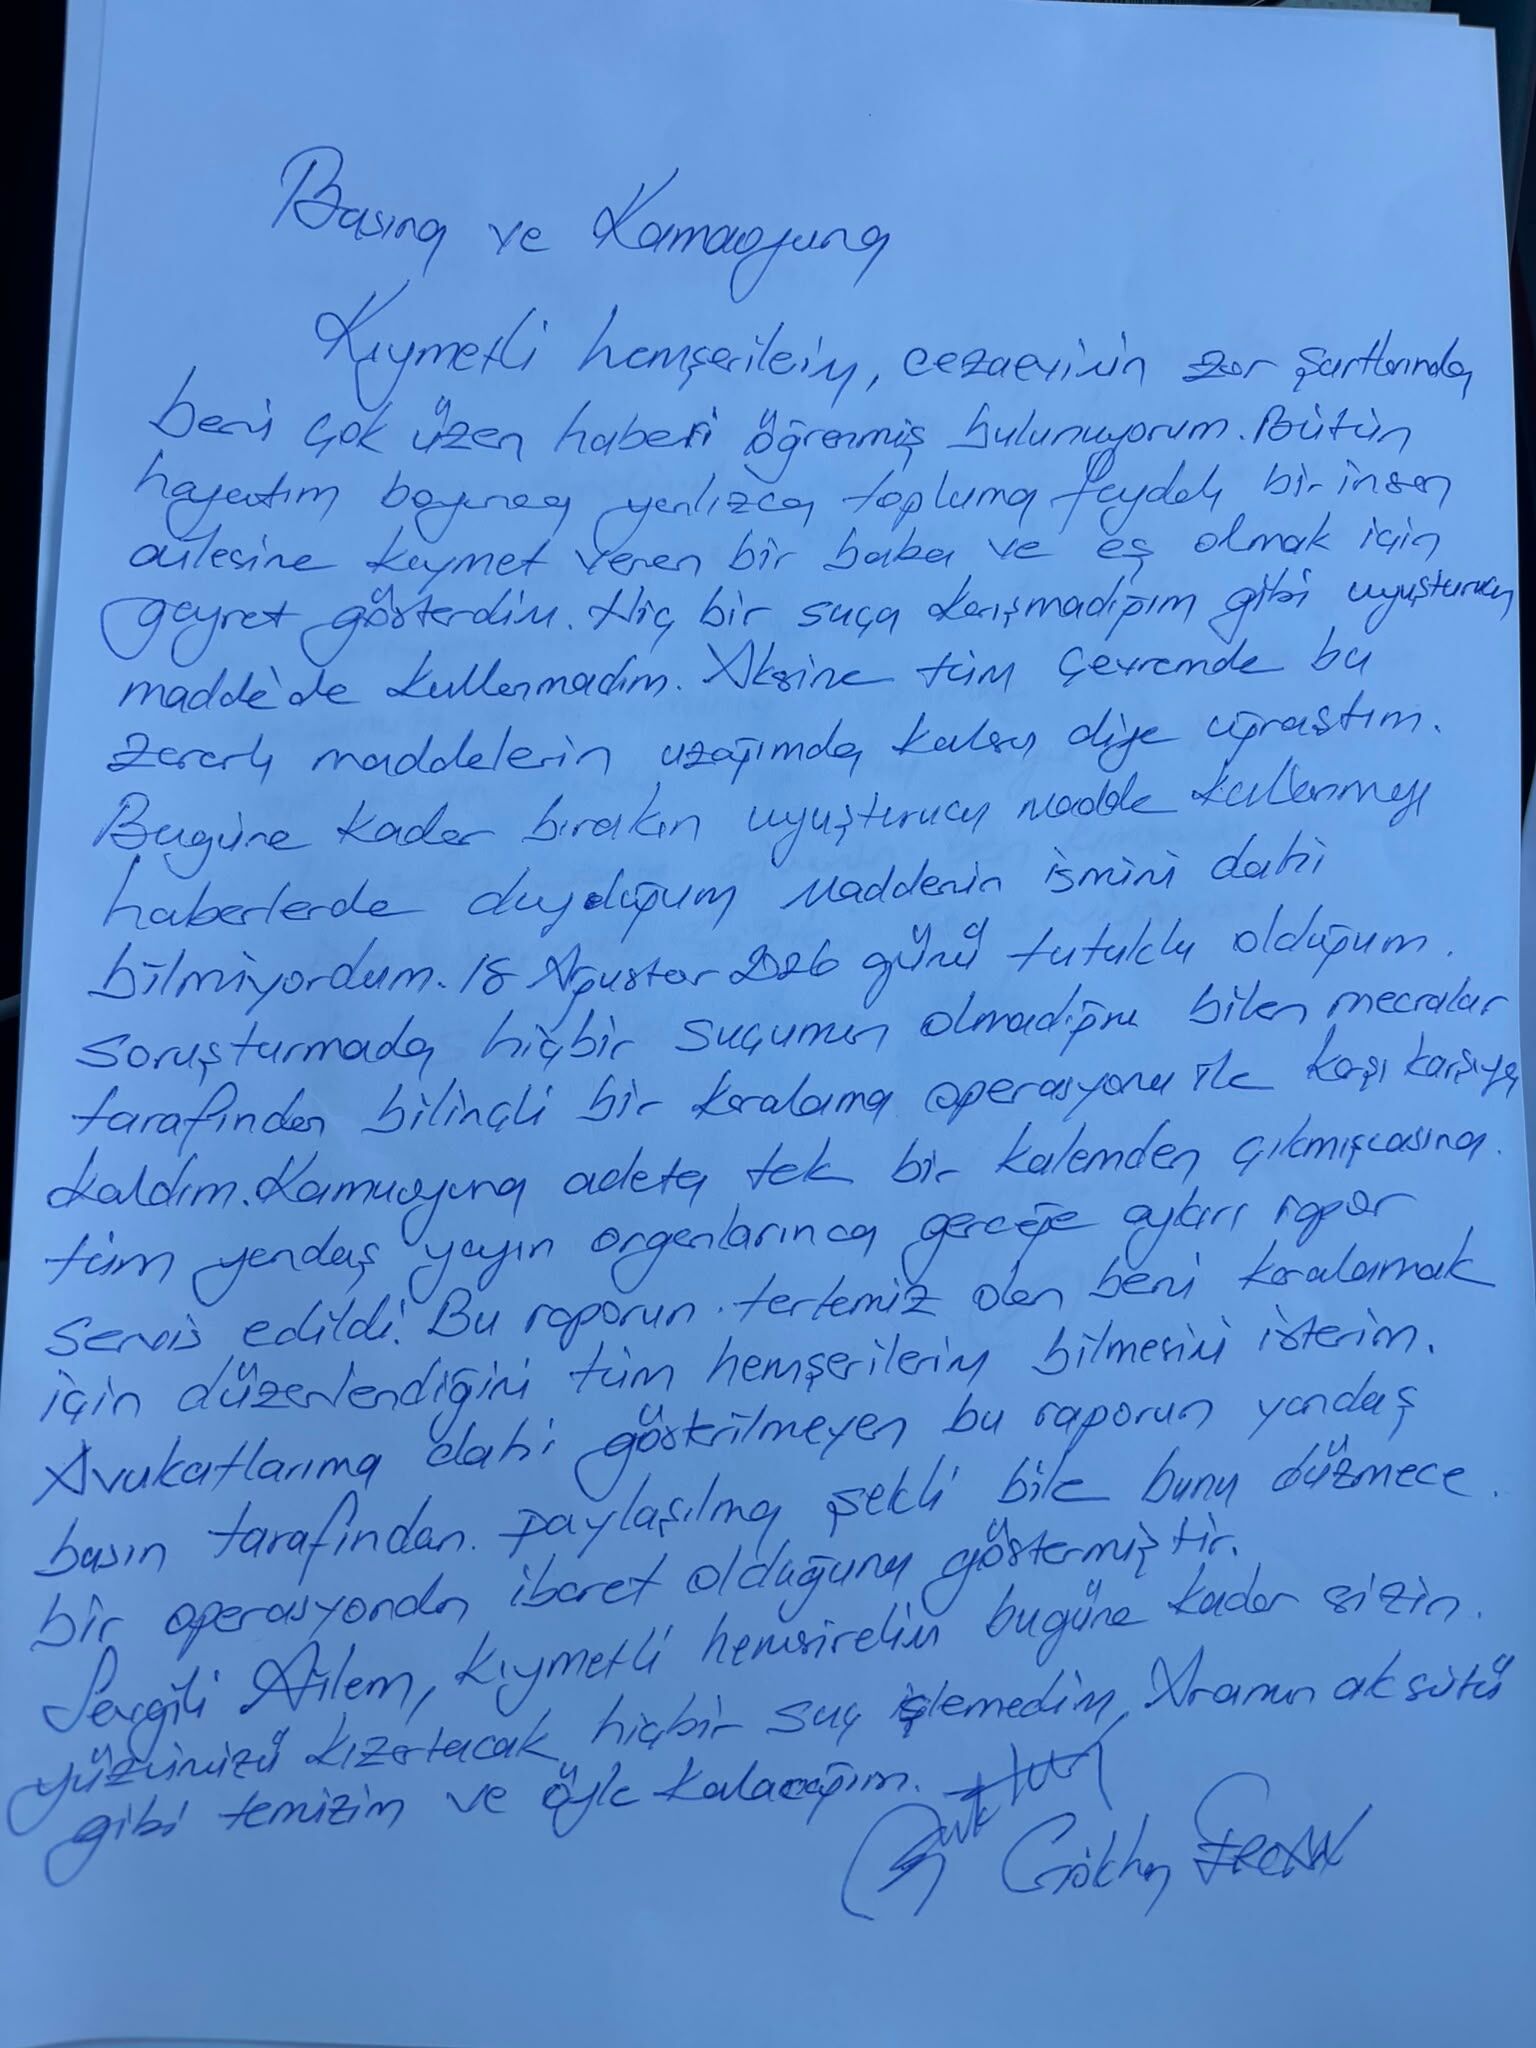 Basına ve Kamaoyuna
Kıymetli hemşerilerim, cezaevinin zor şartlarında
beni çok üzen haberi öğrenmiş bulunuyorum. Bütün
hayatım boyunca yanlızca topluma faydalı bir insan
ailesine kıymet veren bir baba ve eş olmak için
gayret gösterdim. Hiç bir suça karışmadığım gibi uyuşturucu
madde'de kullanmadım. Aksine tüm çevremde bu
zararlı maddelerin uzağımda kalsın diye uğraştım.
Bugüne kadar bırakın uyuşturucu madde kullanmayı
haberlerde duyduğum maddenin ismini dahi
bilmiyordum. 18 Ağustos 2026 günü tutuklu olduğum
soruşturmada hiçbir suçumun olmadığını bilen mecralar
tarafından bilinçli bir karalama operasyonu ile karşı karşıya
kaldım. Kamuoyuna adeta tek bir kalemden çıkmışcasına
tüm yandaş yayın organlarınca gerçeğe aykırı rapor
servis edildi. Bu raporun tertemiz olan beni karalamak
için düzenlendiğini tüm hemşerilerim bilmesini isterim.
Avukatlarıma dahi gösterilmeyen bu raporun yandaş
basın tarafından paylaşılma şekli bile bunu düzmece
bir operasyondan ibaret olduğunu göstermiştir.
Sevgili Ailem, kıymetli hemşirelim bugüne kadar sizin
yüzünüzü kızartacak hiçbir suç işlemedim, Anamın ak sütü
gibi temizim ve öyle kalacağım.
Gökhan